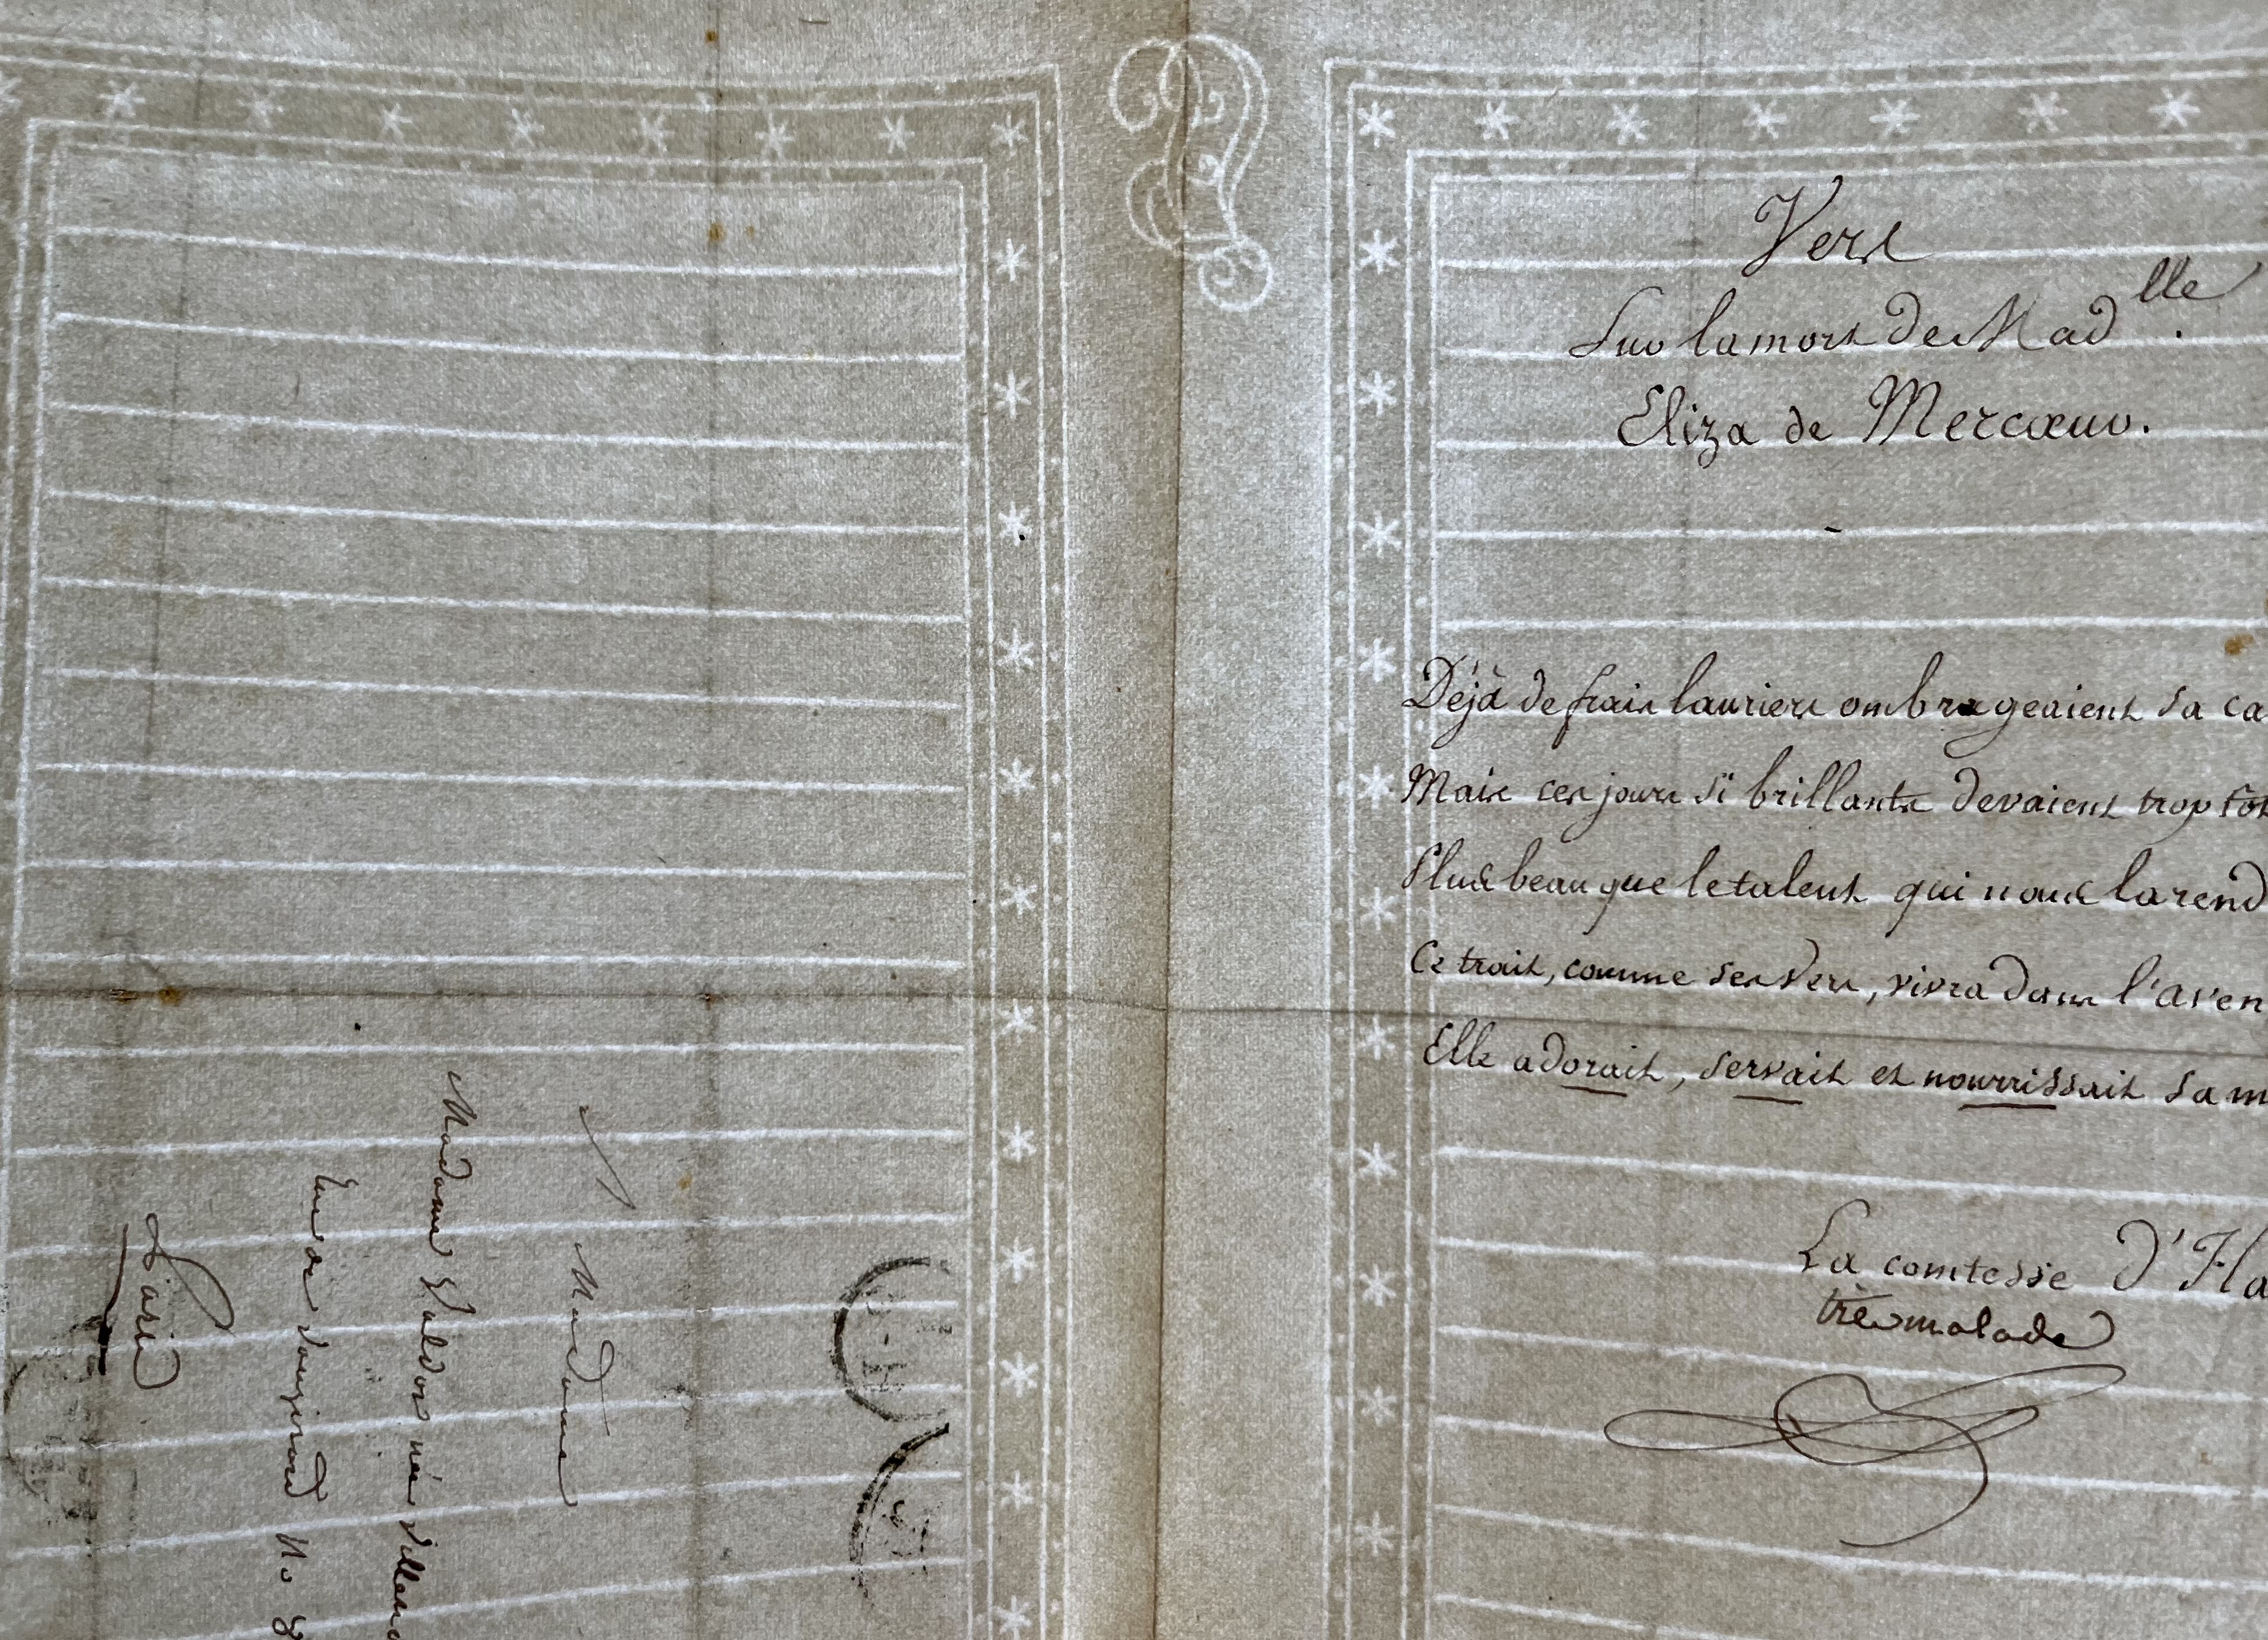 Vers
Sur la mort de Mad.lle
Eliza de Mercœur.
Déjà de frais lauriers ombrageaient sa ca
Mais ces jours si brillants devaient trop tôt
Plus beau que le talent qui nous la rend
Ce trait, comme ses vers, vivra dans l'aven
Elle adorait, servait et nourrissait sa m
La comtesse d'Ha
très malade
Madame
Madame Waldor née Villena
Rue de Vaugirard No 8
Paris